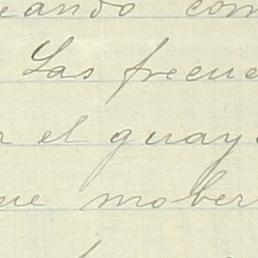 eando com
Las frecue
r el guay
ue mober